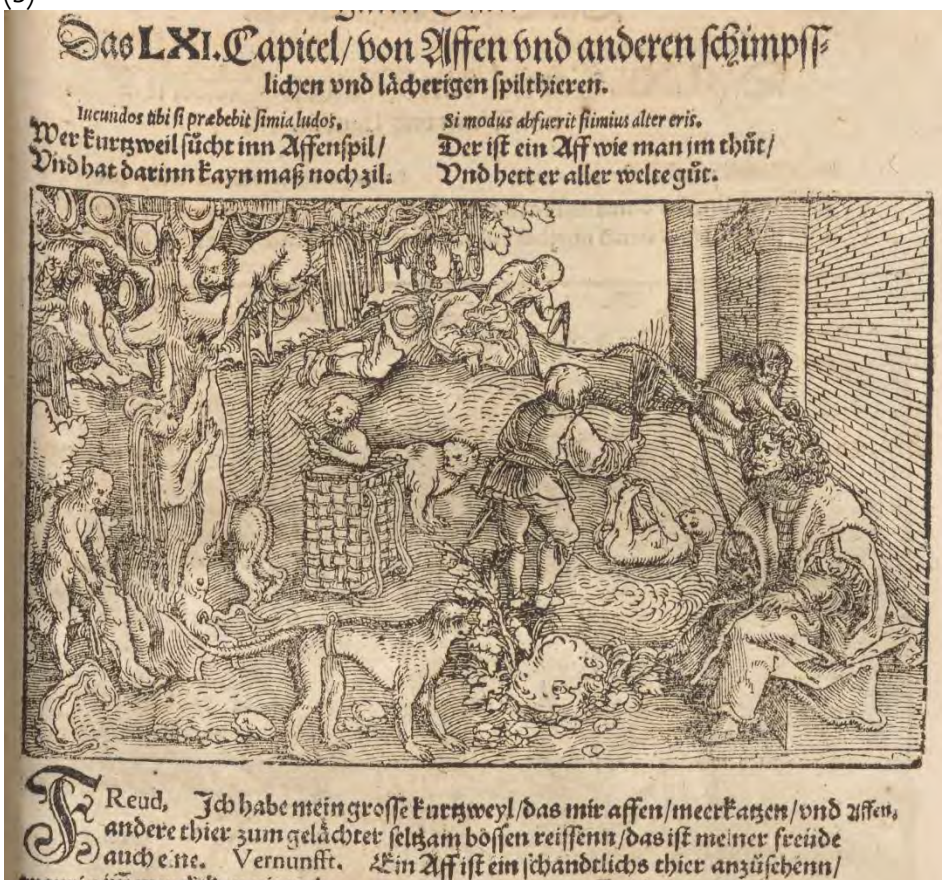 (3)
Das LXI. Capitel/ von Affen vnd anderen schimpff⸗
lichen vnd lächerigen spilthieren.
Iucundos tibi si præbebit simia ludos,
Wer kurtzweil sůcht inn Affenspil/
Vnd hat darinn kayn maß noch zil.
Si modus abfuerit simius alter eris.
Der ist ein Aff wie man jm thůt/
Vnd hett er aller welte gůt.
FReud, Ich habe mein grosse kurtzweyl/das mir affen/meerkatzen/vnd Affen,
andere thier zum gelächter seltzam bossen reissenn/das ist meiner freüde
auch eine. Vernunfft. Ein Aff ist ein schandtlichs thier anzůschenn/